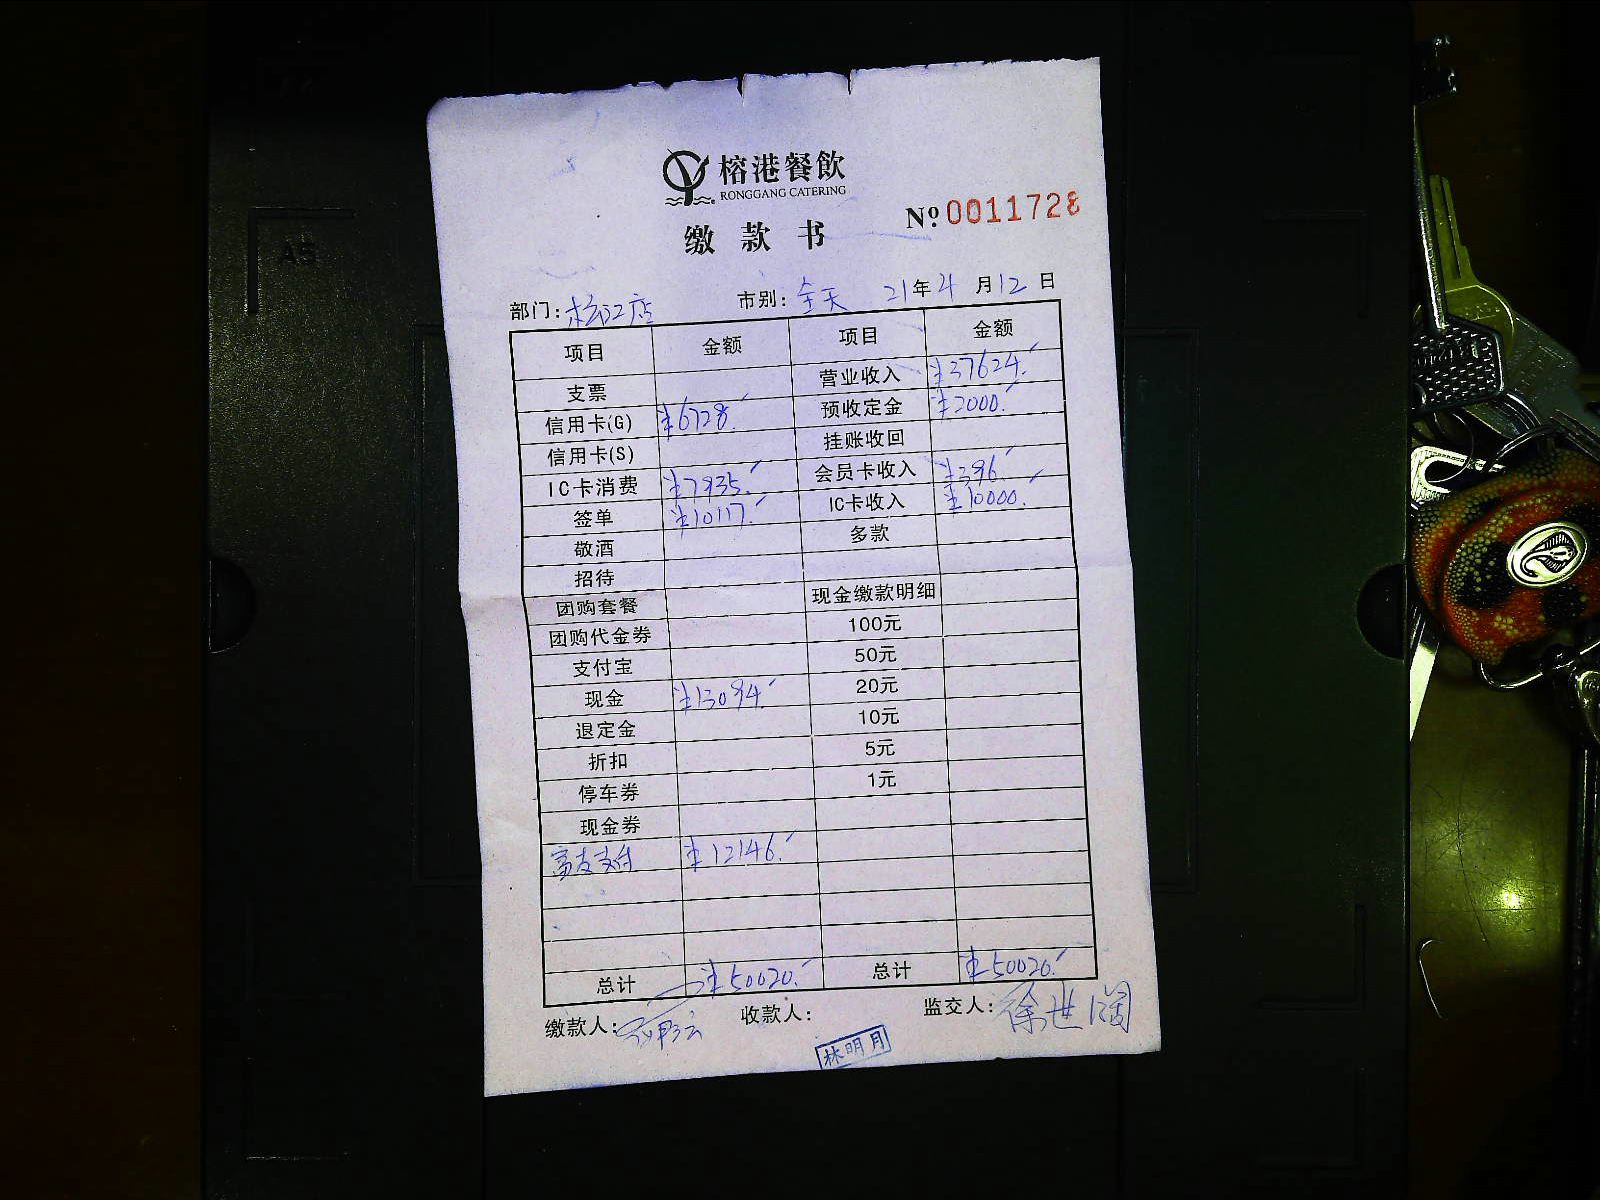 榕港餐飲
RONGGANG CATERING
缴款书
Nº 0011728
部门:松江店 市别:全天 21年4月12日
项目 金额 项目 金额
支票 营业收入 ¥37624.
信用卡(G) ¥6728. 预收定金 ¥2000.
信用卡(S) 挂账收回
IC卡消费 ¥7935. 会员卡收入 ¥396.
签单 ¥10117. IC卡收入 ¥10000.
敬酒 多款
招待
团购套餐 现金缴款明细
团购代金券 100元
支付宝 50元
现金 ¥13094. 20元
退定金 10元
折扣 5元
停车券 1元
现金券
富友支付 ¥12146.
总计 ¥50020. 总计 ¥50020.
缴款人: 收款人: 监交人:徐世
林明月
A5